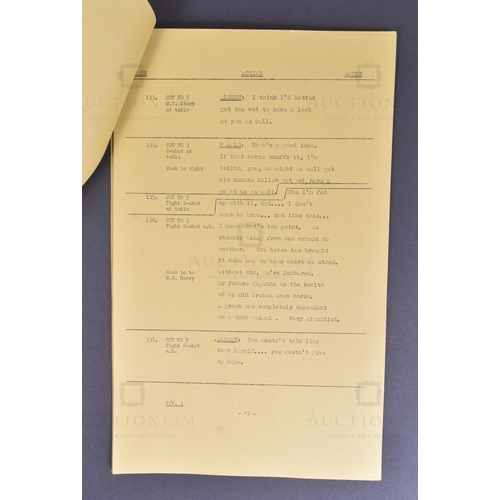 ACTION
133. CUT TO 5 ALBERT: I think I'd better
M.S. Albert got the vet to have a look
at table at you as well.
134. CUT TO 3 HAROLD: That's a good idea.
2-shot at If that horse snuffs it, I'm
table telling you, he might as well get
Zoom in tight his humane killer out and have a
go at us as well. Cos I'm fed
135. CUT TO 5 up with it, Dad.... I don't
Tight 2-shot
at table want to know... not like this...
136. CUT TO 3 I mean what's the point.
Tight 2-shot a.b. stumble along from one crisis to
another. The horse has brought
it home to me where we stand.
Zoom in to Without him, we're lumbered.
M.S. Harry My future depends on the health
of an old broken down horse.
A grown man completely dependent
on a dumb animal. Very dignified.
137. CUT TO 5 ALBERT: You mustn't talk like
Tight 2-shot that Harold.... you mustn't give
a.b. up hope.
- 23 -
AUCTIONEUM